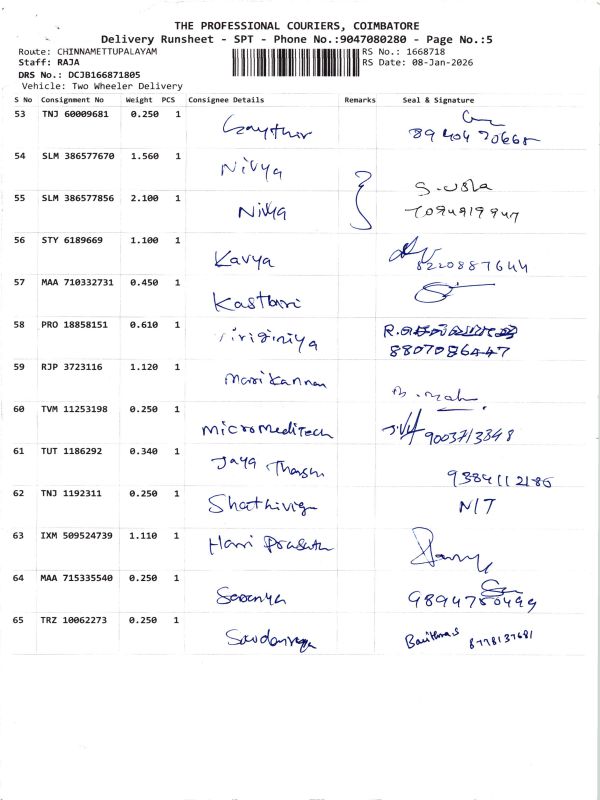 THE PROFESSIONAL COURIERS, COIMBATORE
Delivery Runsheet - SPT - Phone No.:9047080280 - Page No.:5
Route: CHINNAMETTUPALAYAM RS No.: 1668718
Staff: RAJA RS Date: 08-Jan-2026
DRS No.: DCJB166871805
Vehicle: Two Wheeler Delivery
S No Consignment No Weight PCS Consignee Details Remarks Seal & Signature
53 TNJ 60009681 0.250 1 Gaythir
54 SLM 386577670 1.560 1 Nivya
S. Usha
55 SLM 386577856 2.100 1 Nivya
56 STY 6189669 1.100 1 Kavya 8220887644
57 MAA 710332731 0.450 1 Kasthuri
58 PRO 18858151 0.610 1 Viriginiya
8807086447
59 RJP 3723116 1.120 1 Marikannan
60 TVM 11253198 0.250 1 MicroMediTech 9003713348
61 TUT 1186292 0.340 1 Jaya 9384112186
62 TNJ 1192311 0.250 1 N/T
63 IXM 509524739 1.110 1 Hari Prasath
64 MAA 715335540 0.250 1 Saranya 9894750499
65 TRZ 10062273 0.250 1 8778137681